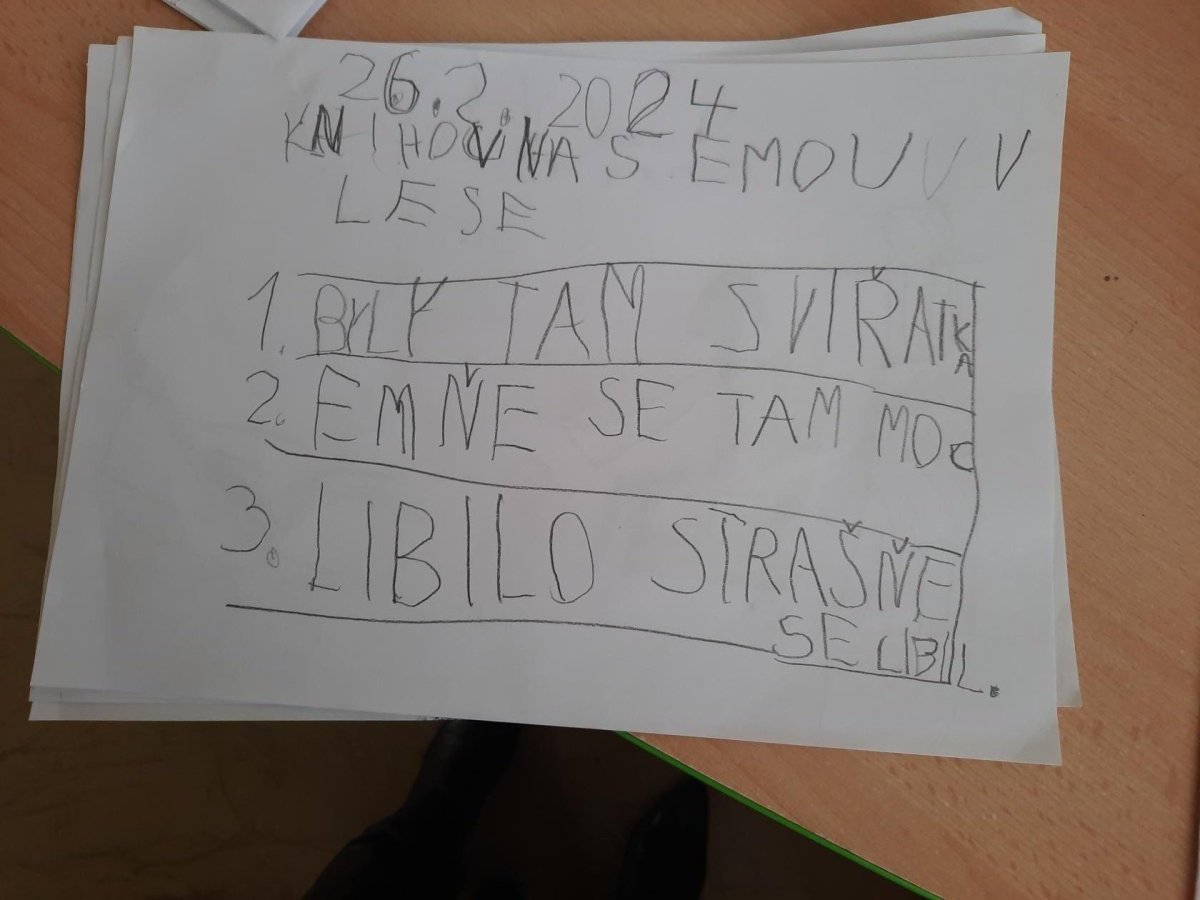 26.2.2024
KNIHOVNA S EMOU V
LESE
1. BYLY TAM SVIŘATKA
2. EMŇE SE TAM MOC
3. LIBILO STRAŠŇE
SE LIBIL.